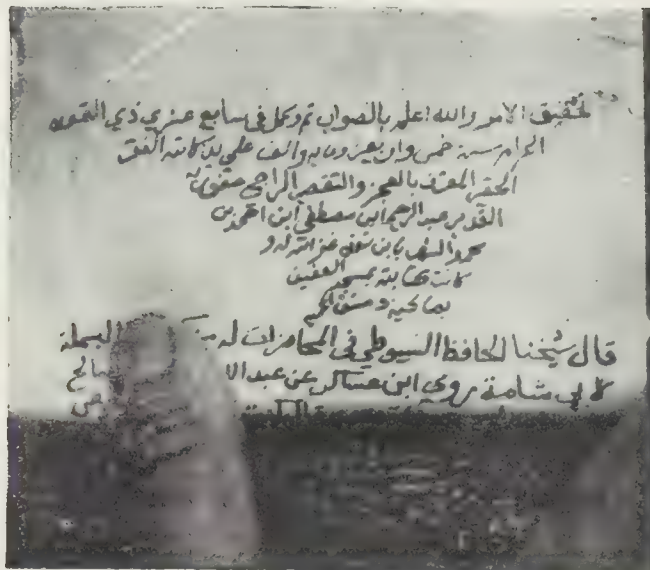 لتحقيق الامر والله اعلم بالصواب تم وكمل في سابع عشري ذي القعدة
الحرام سنة خمس واربعين وماية والف على يد كاتبه الفقير
الحقير المعترف بالعجز والتقصير الراجي عفو ربه
القدير عبد الرحيم ابن مصطفى ابن احمد بن
محمد الشهير بابن غفر الله له و
كانت كتابته بمسجد العفيف
بصالحية دمشق
قال شيخنا الحافظ السيوطي في المحاضرات له البسملة
لابي شامة روى ابن عساكر عن عبد الا صالح